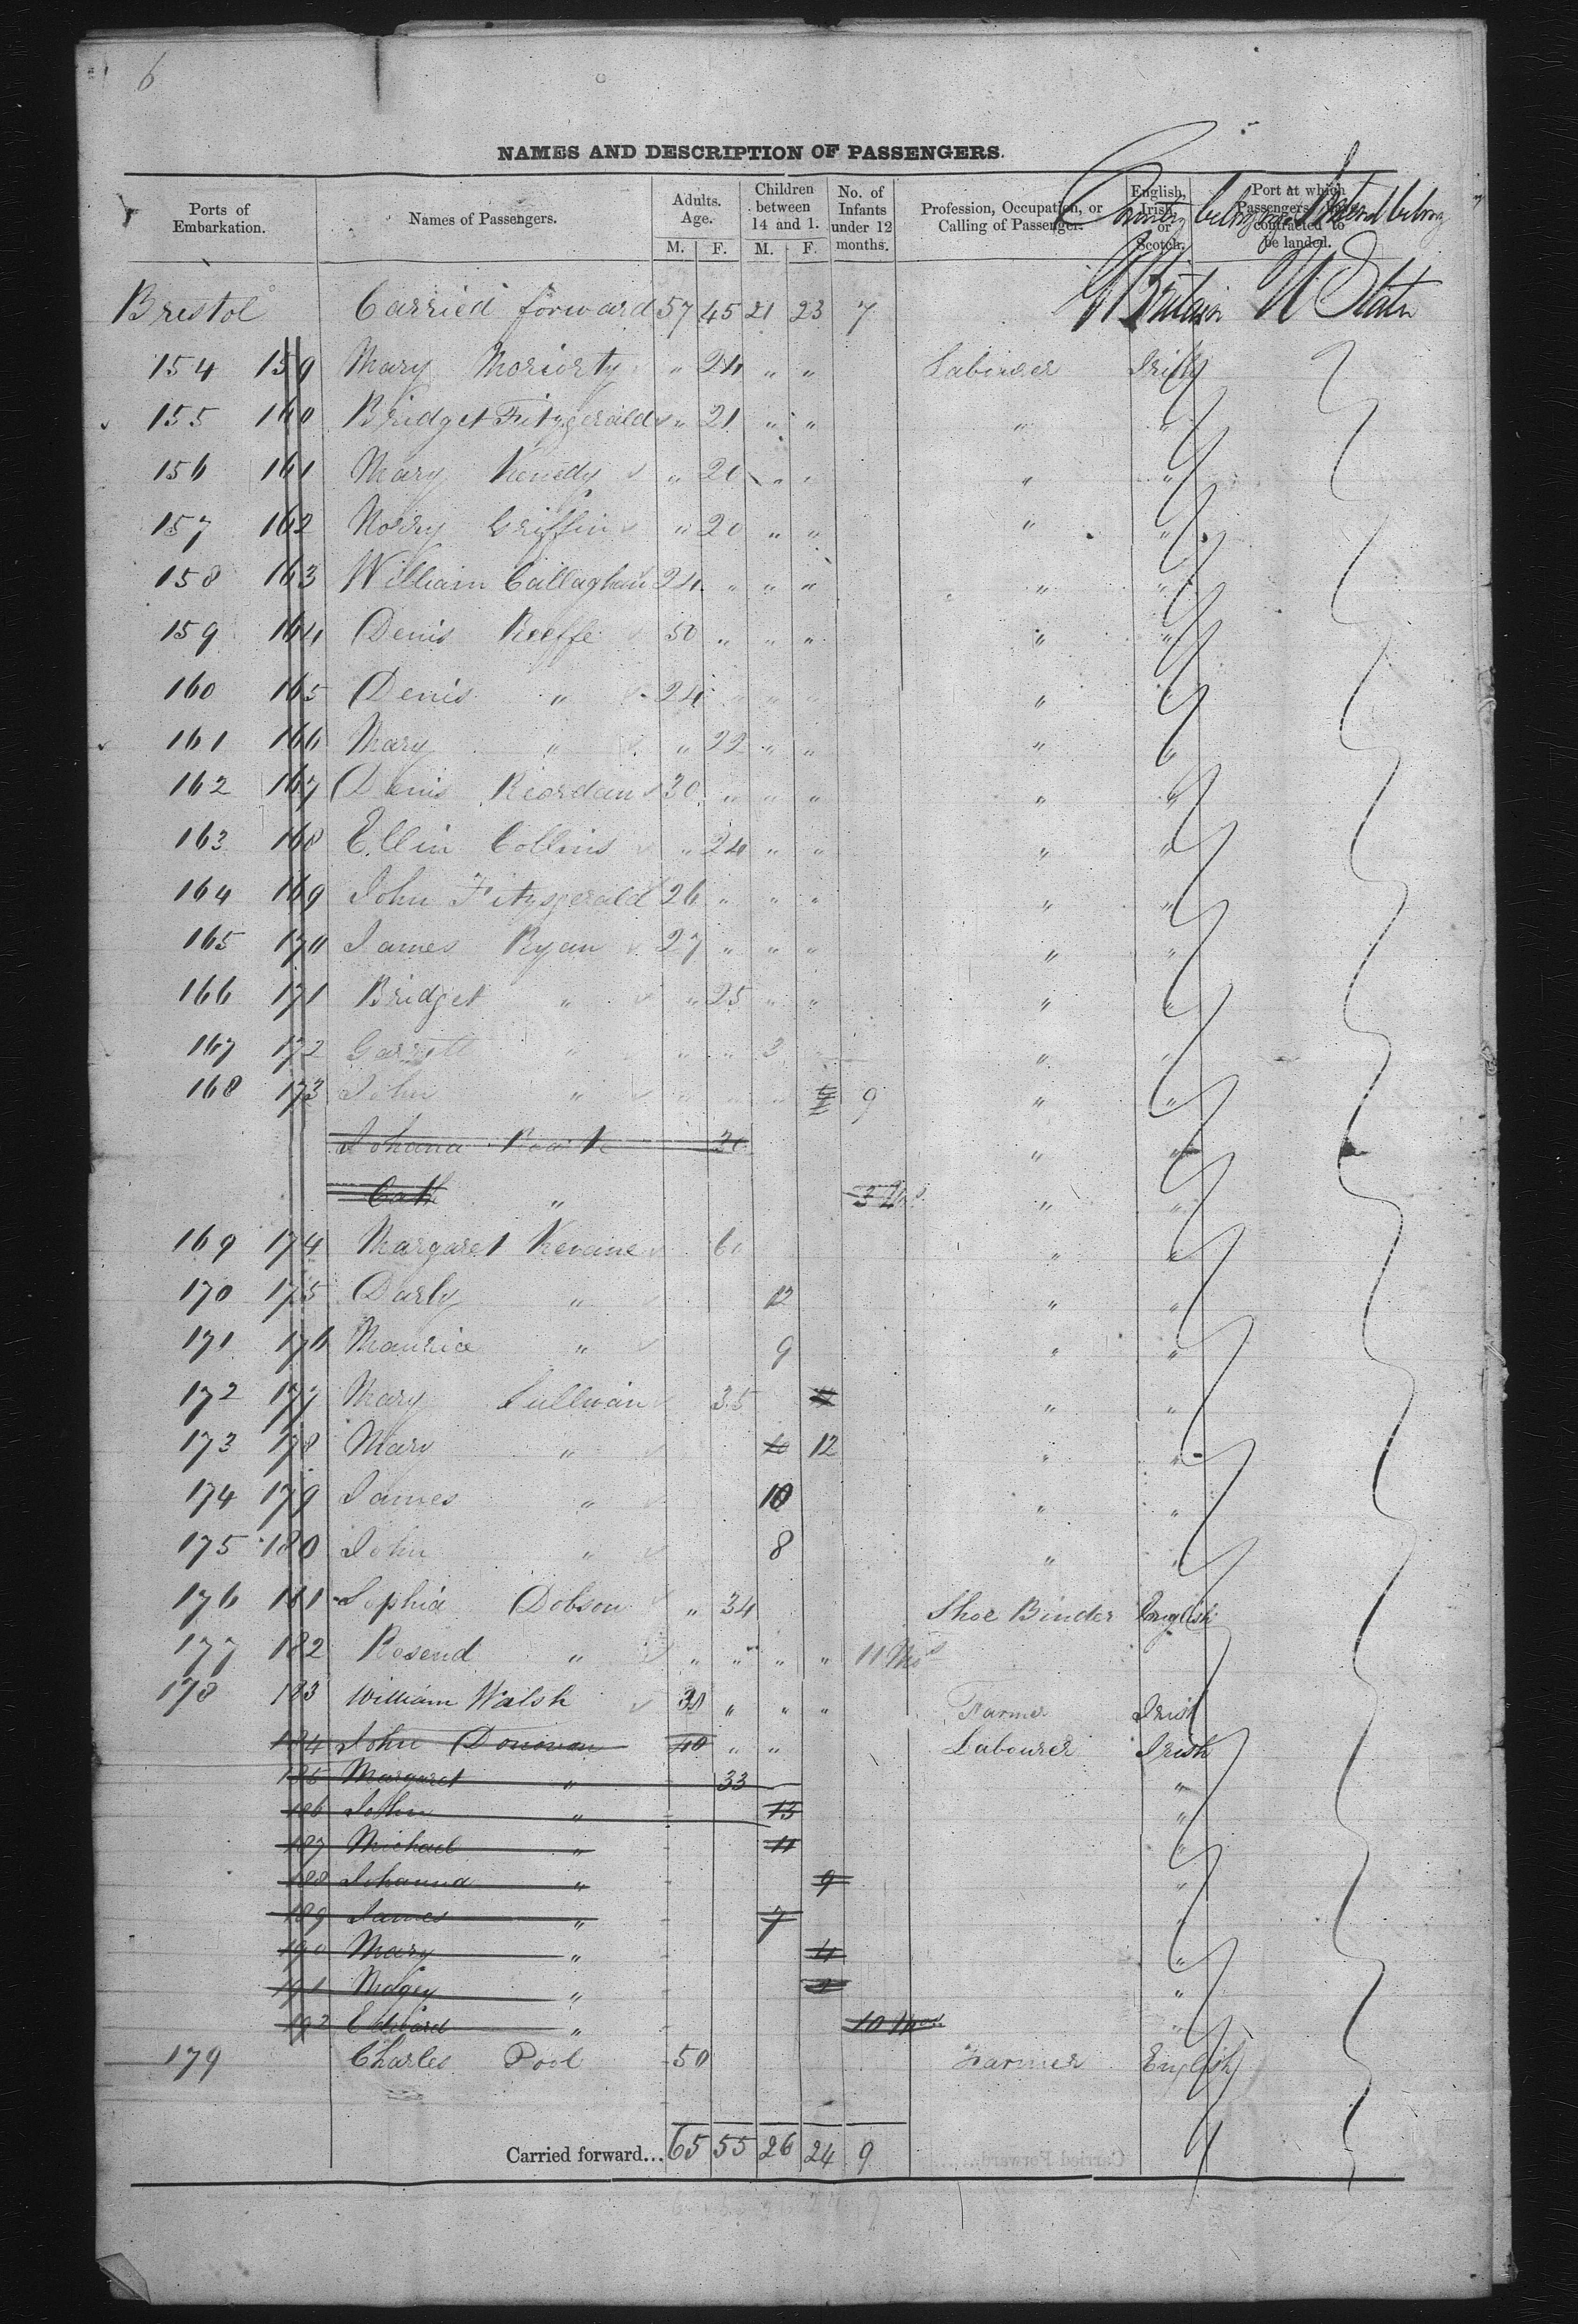 6
NAMES AND DESCRIPTION OF PASSENGERS.
Ports of Embarkation. Names of Passengers. Adults. Age. M. F. Children between 14 and 1. M. F. No. of Infants under 12 months. Profession, Occupation, or Calling of Passenger. English, Irish, or Scotch. Port at which Passengers contracted to be landed.
Country belonging Intend belong
Bristol Carried forward 57 45 21 23 7 Gt Britain U States
154 159 Mary Moriorty " 24 " " Labourer Irish
155 160 Bridget Fitzgerald " 21 " " " "
156 161 Mary Kenedy " 20 " " " "
157 162 Norry Griffin " 20 " " " "
158 163 William Callaghan 24 " " " " "
159 164 Denis Keeffe 50 " " " " "
160 165 Denis " 24 " " " " "
161 166 Mary " " 22 " " " "
162 167 Denis Riordan 30 " " " " "
163 168 Ellin Collins " 24 " " " "
164 169 John Fitzgerald 26 " " " " "
165 170 James Ryan 27 " " " " "
166 171 Bridget " " 25 " " " "
167 172 Garrett " " " 3 " " "
168 173 John " " " " 9 " "
Johana 30 " "
Cath " 3 Ms " "
169 174 Margaret Kevane 60 " "
170 175 Darby " 12 " "
171 176 Maurice " 9 " "
172 177 Mary Sullivan 35 " "
173 178 Mary " 12 " "
174 179 James " 10 " "
175 180 John " 8 " "
176 181 Sophia Dobson " 34 Shoe Binder English
177 182 Rosend " " " " " 11 Mos
178 183 William Walsh 30 " " " Farmer Irish
184 John Donovan 40 " " Labourer Irish
185 Margaret " 33 "
186 John " 13 "
187 Michael " 11 "
188 Johanna " 9 "
189 James " 7 "
190 Mary " 4 "
191 " "
192 Edward " 10 Mos "
179 Charles Pool 50 Farmer English
Carried forward... 65 55 26 24 9